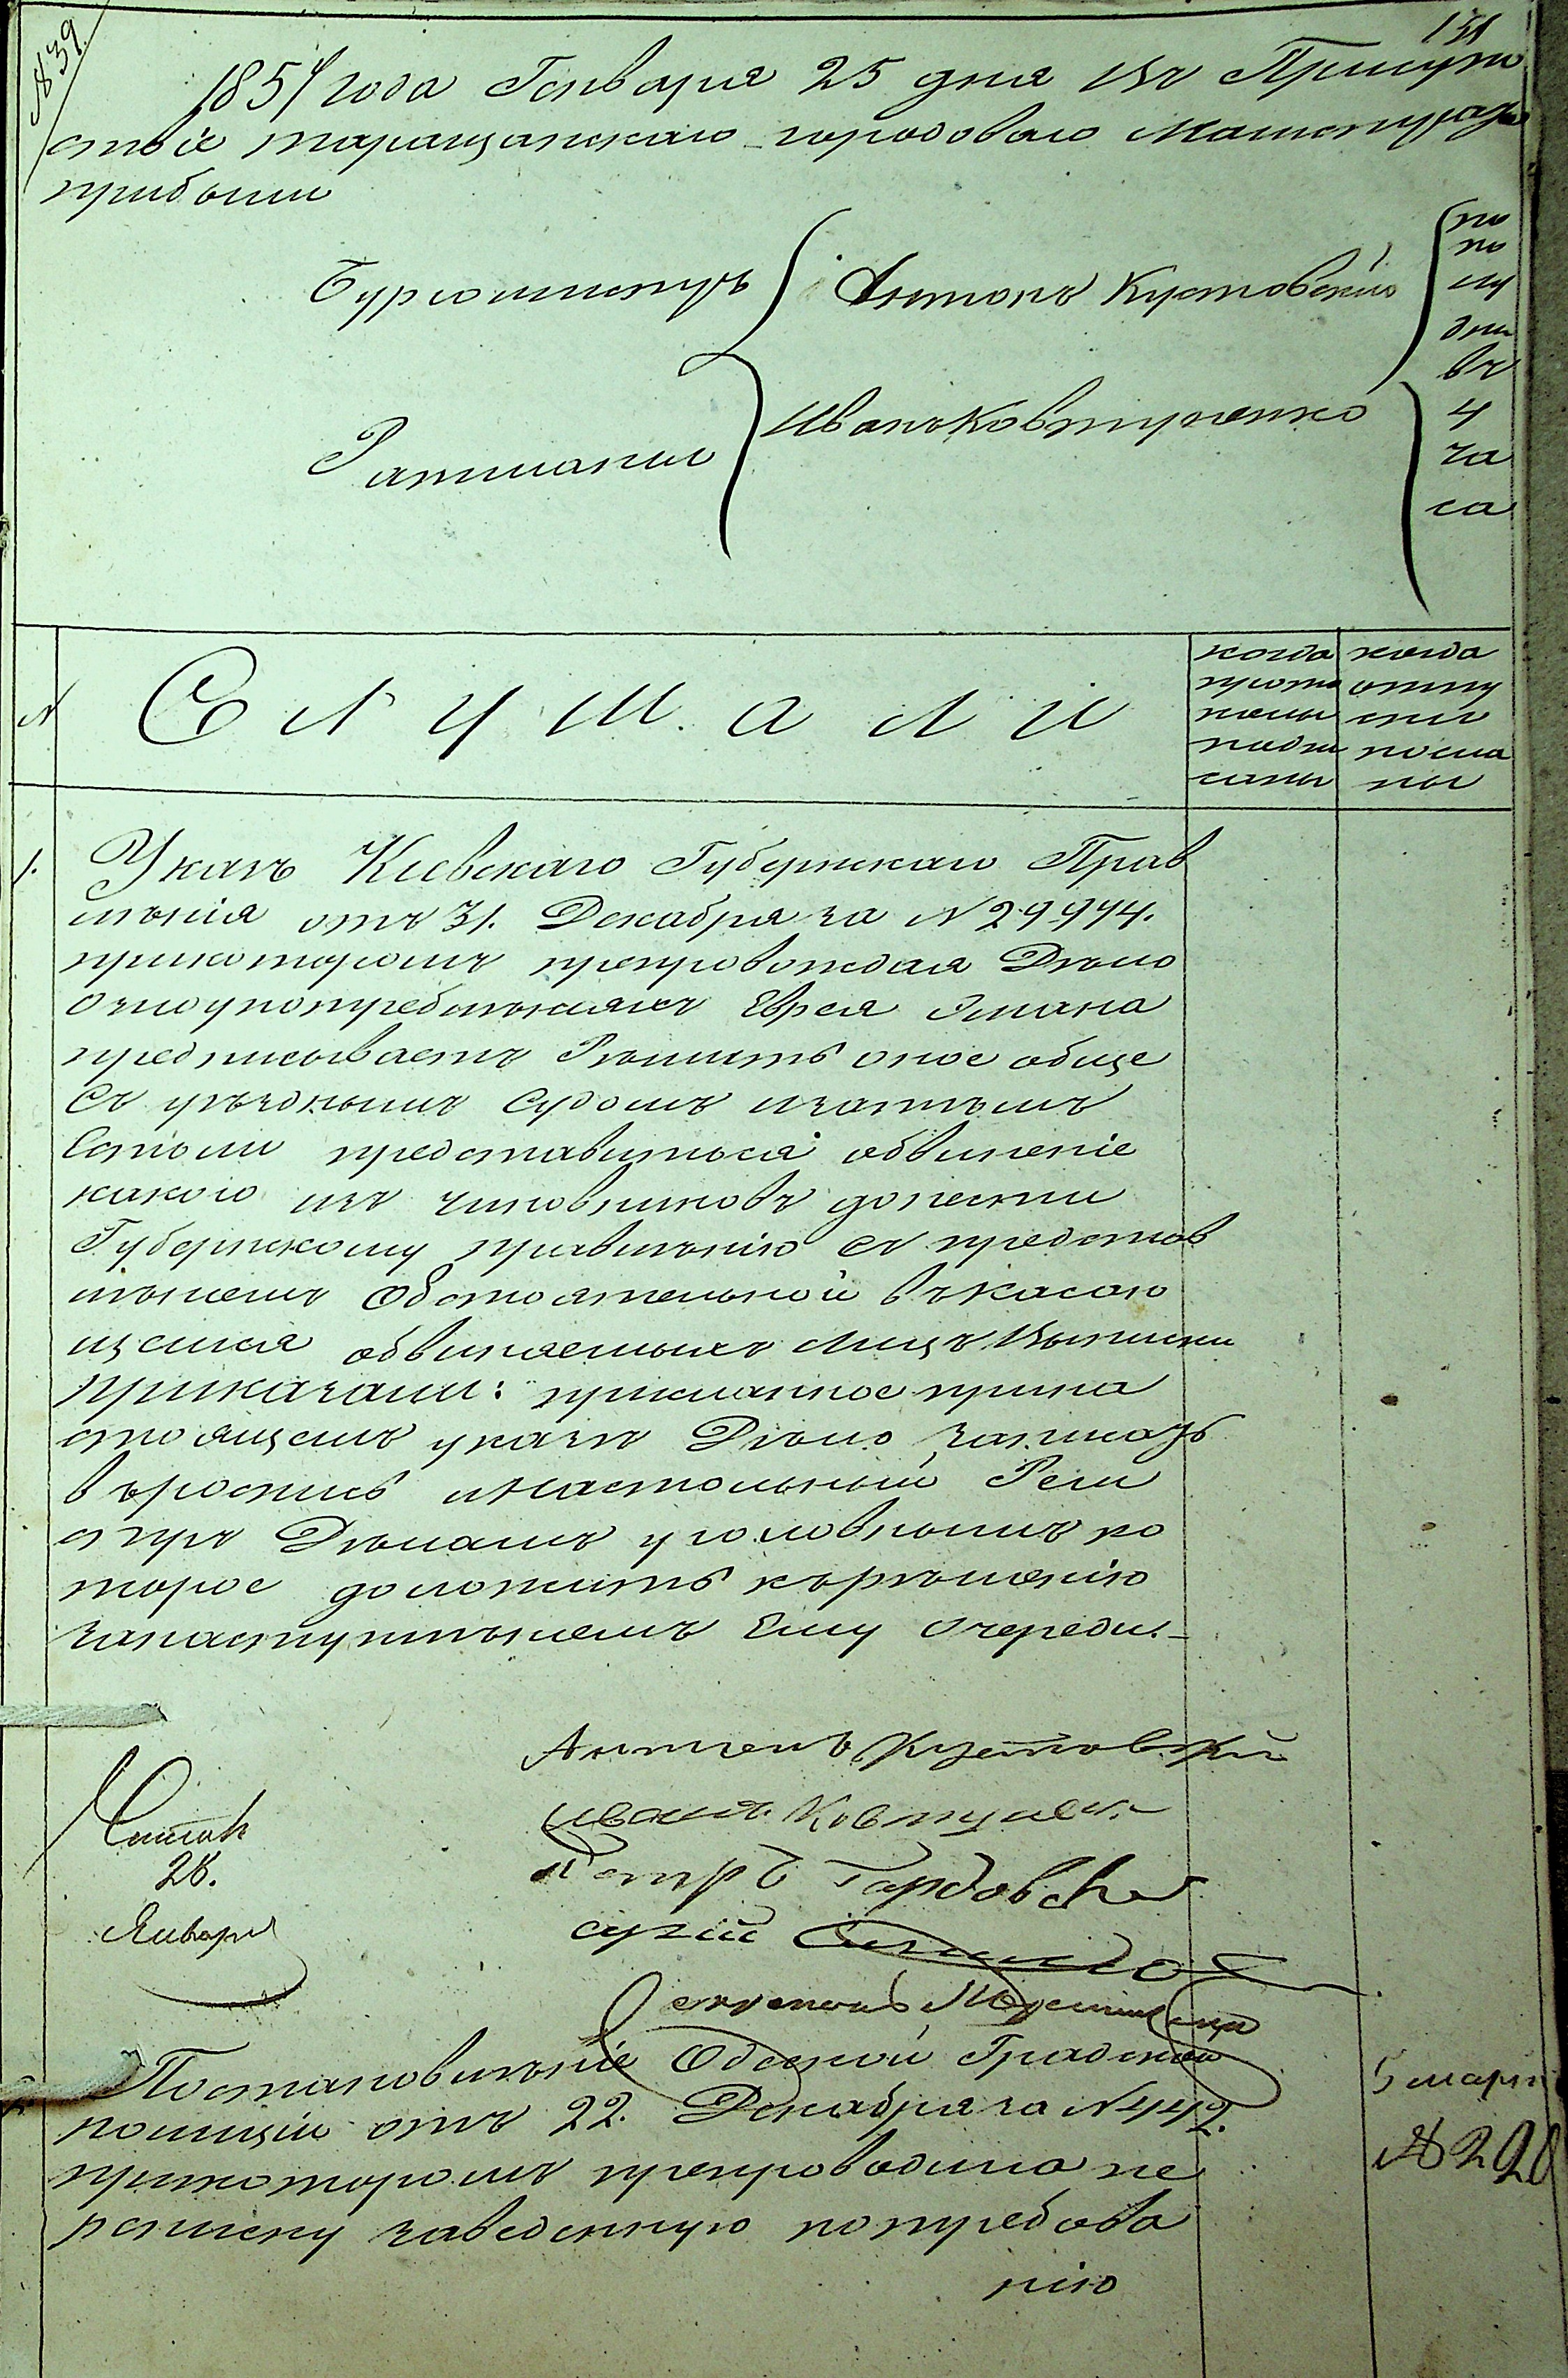 № 39.
131
1854 года Генваря 25 дня Въ Присут
ствіе таращанскаго городоваго Магистрата
прибыли
Бургомистръ
Антонъ Кустовскій
Ратманъ
Иванъ Ковтуненко
по
по
лу
дни
въ
4
ча
са
№
Слушали
когда
прото
колы
подпи
саны
когда
отпу
ски
посла
ны
1.
Указъ Кіевскаго Губернскаго Прав
лѣнія отъ 31. Декабря за №
прикоторомъ препровождая Дѣло
озлоупотреблѣніяхъ Еврея
предписываетъ Рѣшить оное обще
Съ уѣзднымъ Судомъ изатѣмъ
Естьли представитьса обвиненіе
какого изъ чиновниковъ донести
Губернскому правлѣнію съ представ
лѣніемъ Обстоятельной въкасаю
щемся обвиняемыхъ Лицъ Выписки
приказали: присланное прина
стоящемъ указѣ Дѣло записать
въроспись инастольный Реги
стръ Дѣламъ уголовнымъ ко
торое доложить кърѣшенію
занаступлѣніемъ Ему очереди.
Антонъ Кустовскій
Иванъ Ковтунен.
Петръ Гардовск
Читалъ
28.
Января
Постановлѣніе Одеской Градской
полиціи отъ 22. Декабря за № 442.
прикоторомъ препроводила пе
реписку заведенную потребова
нію
5 марта
№ 220